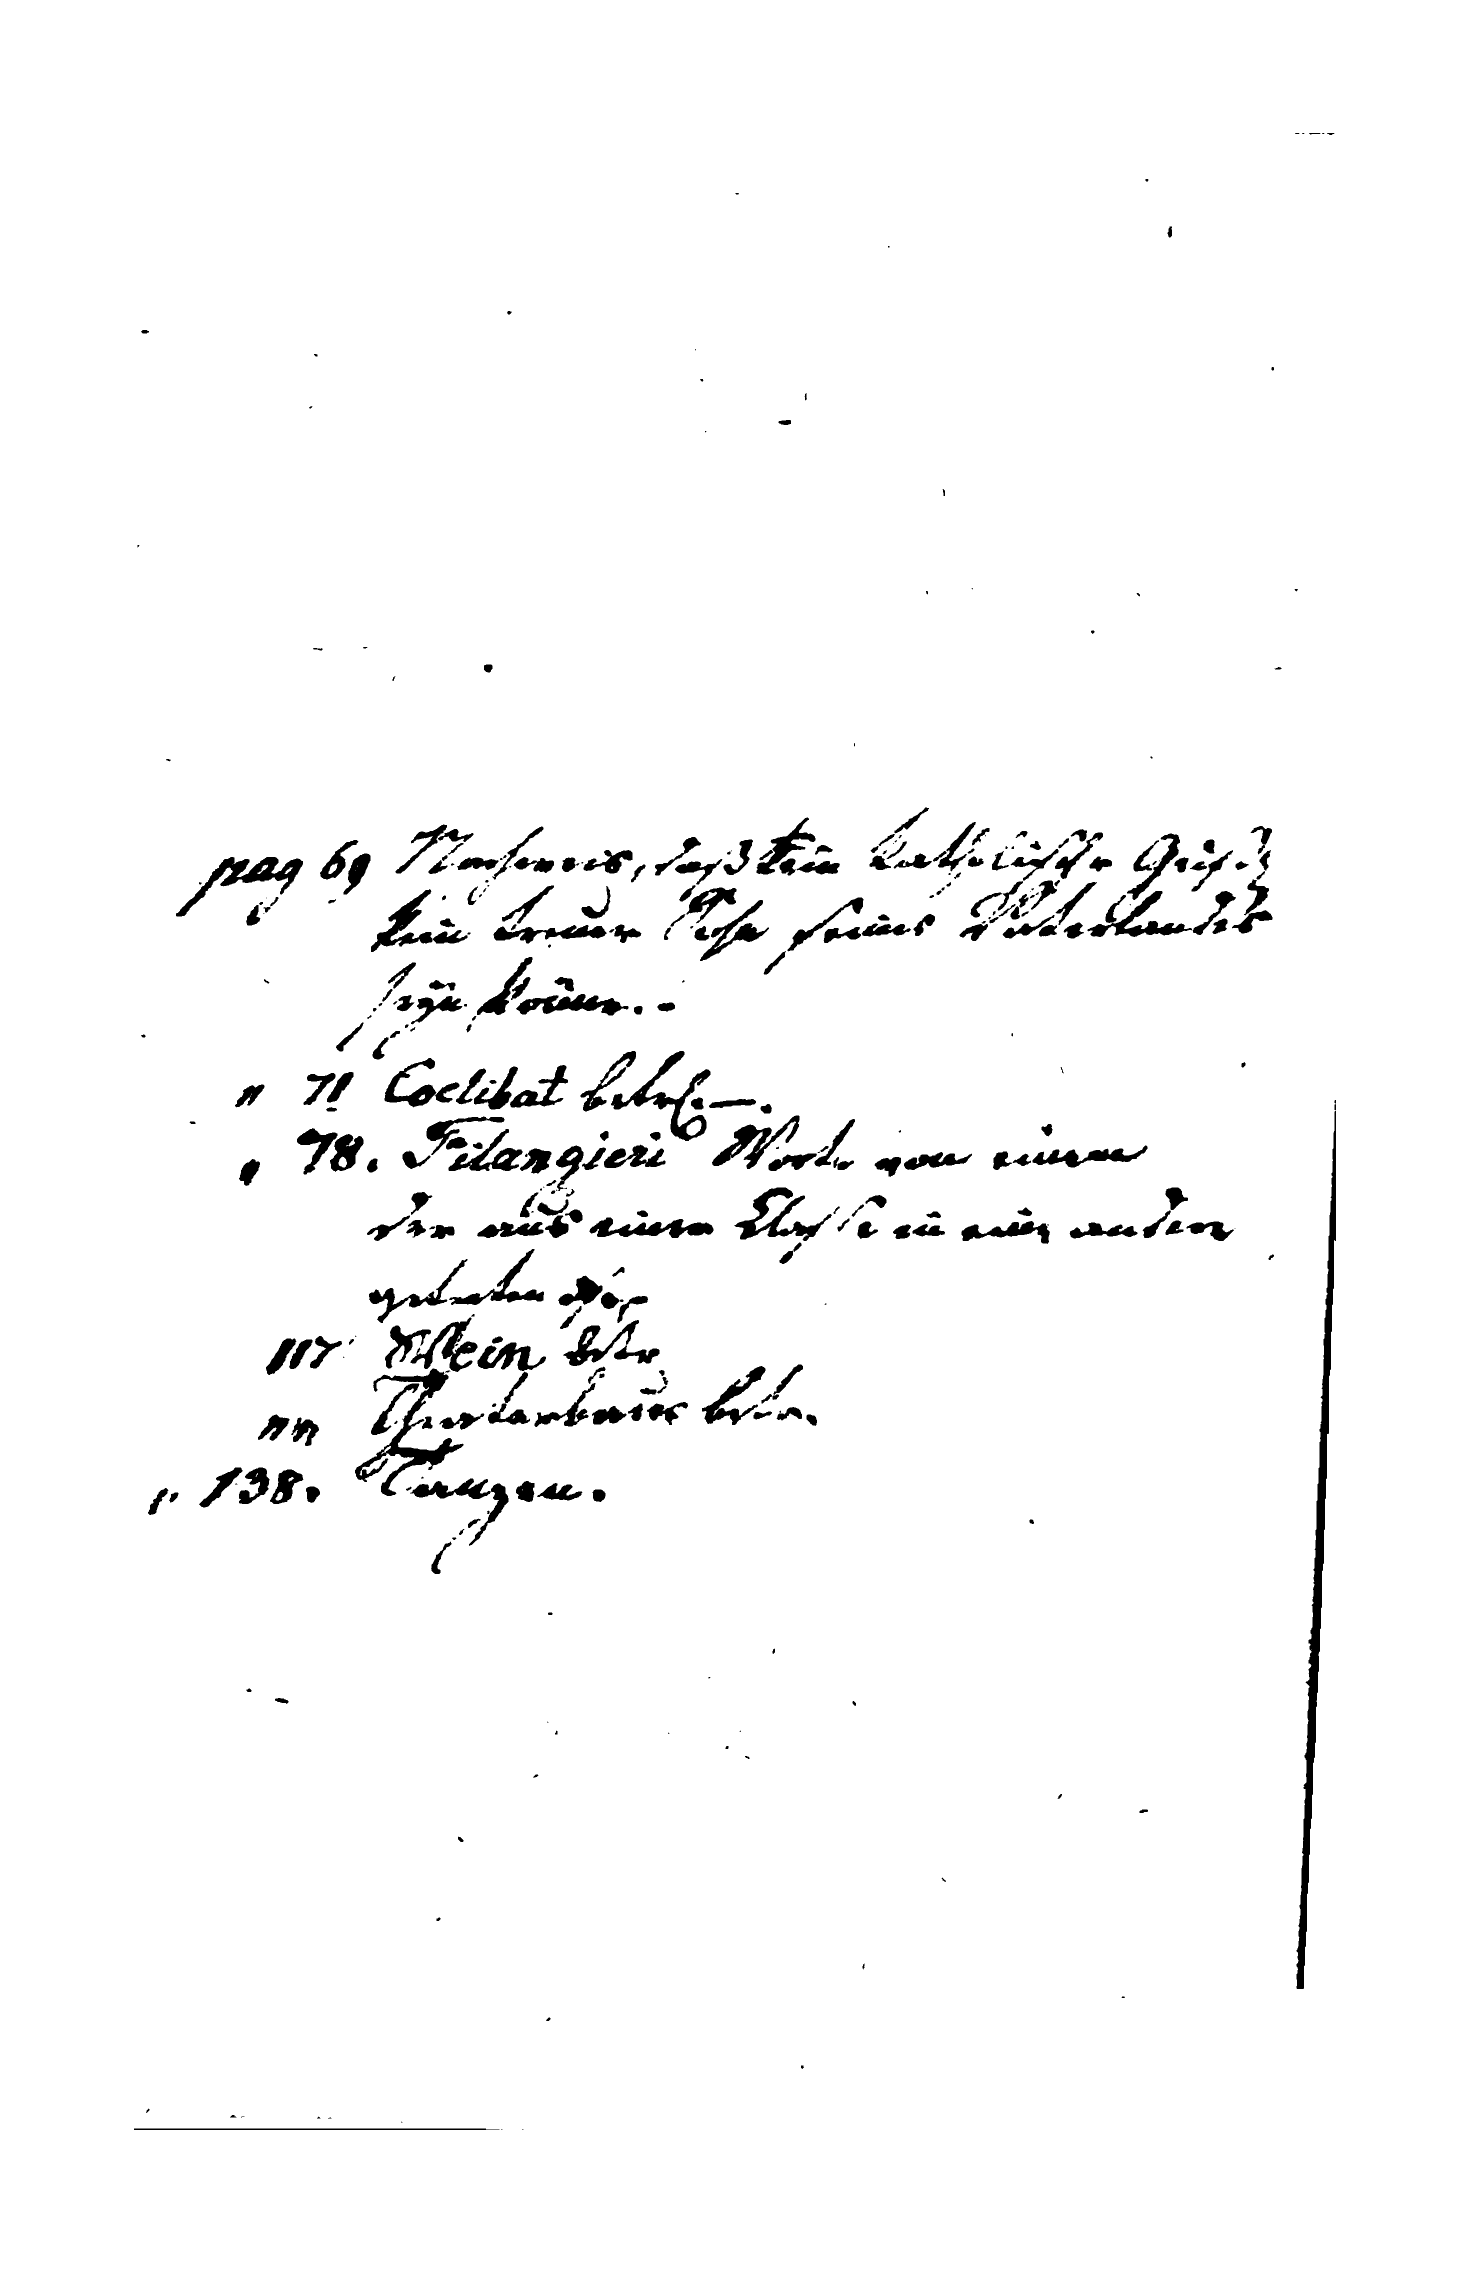 pag 69 Nachweis, daß kein katholischer Geistl
kein treuer Sohn seines Vaterlandes
seyn könne. -
" 71 Coelibat betref. —.
" 78. Filangieri Worte von einem
der aus einer Classe in eine andere
getreten
117 Wein betr
" " Theaterbaues betr.
" 138. Tanzen.